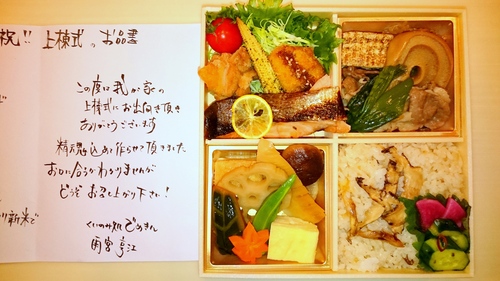 祝!! 上棟式 の お品書
この度は我が家の
上棟式にお出向き頂き
ありがとうございます
精魂込めて作らせて頂きました
お口に合うかわかりませんが
どうぞ お召し上がり下さい!
くいのみ処 でめきん
新米で